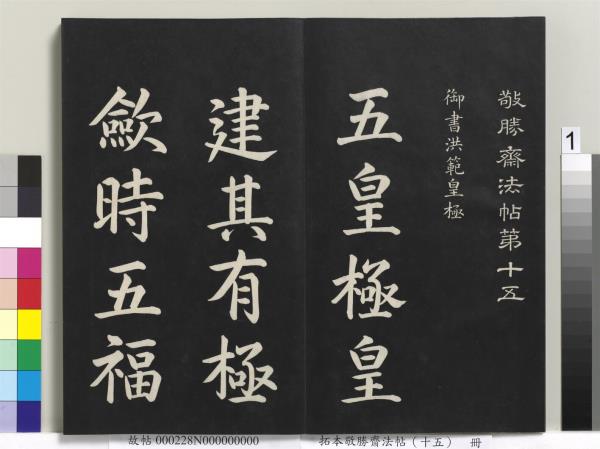 敬勝齋法帖第十五
御書洪範皇極
五皇極皇
建其有極
斂時五福
1
故帖 000228N000000000
拓本敬勝齋法帖（十五） 冊